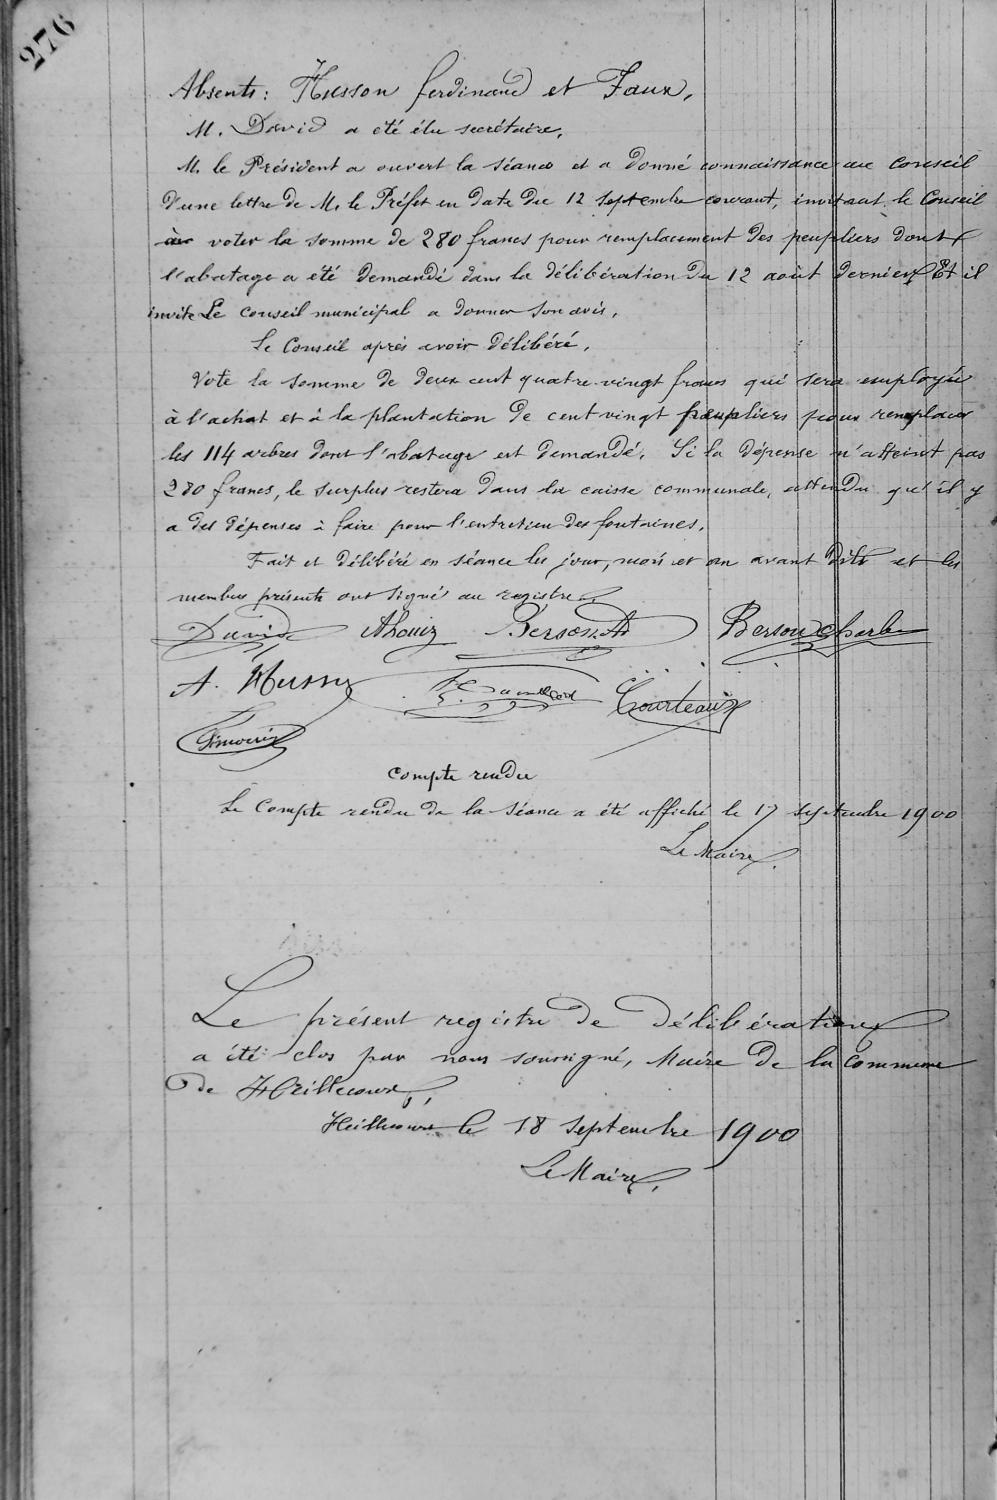 276
Absents : Husson ferdinand et Faux,
M. David a été élu secrétaire,
M. le Président a ouvert la séance et a donné connaissance au conseil
d'une lettre de M. le Préfet en date du 12 septembre courant, invitant le Conseil
à voter la somme de 280 francs pour remplacement des peupliers dont
l'abatage a été demandé dans la délibération du 12 août dernier, Et il
invite Le conseil municipal a donner son avis.
Le Conseil après avoir délibéré,
Vote la somme de deux cent quatre-vingt francs qui sera employée
à l'achat et à la plantation de cent vingt peupliers pour remplacer
les 114 arbres dont l'abatage est demandé. Si la dépense n'atteint pas
280 francs, le surplus restera dans la caisse communale, attendu qu'il y
a des dépenses à faire pour l'entretien des fontaines.
Fait et délibéré en séance les jour, mois et an avant dits et les
membres présents ont signé au registre.
David Bersons Berson Charles
A. Husson Courteaux
compte rendu
Le compte rendu de la séance a été affiché le 17 septembre 1900
Le Maire,
Le présent registre de délibérations
a été clos par nous soussigné, Maire de la commune
de Heillecourt,
Heillecourt le 18 septembre 1900
Le Maire,